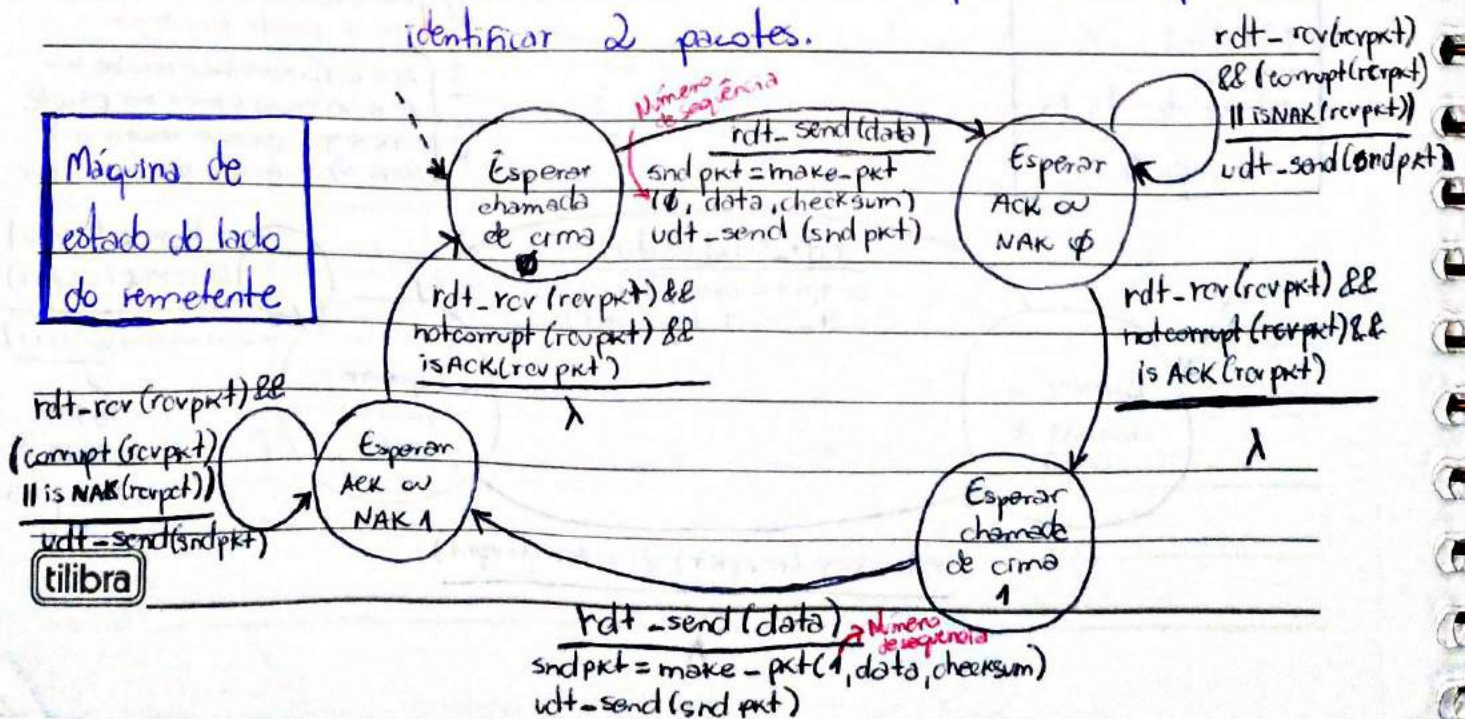 identificar 2 pacotes.
Máquina de
estado do lado
do remetente
Número
de seqência
Esperar
chamada
de cima
0
rdt_send(data)
snd pkt = make-pkt
(0, data, checksum)
udt-send (snd pkt)
Esperar
ACK ou
NAK 0
rdt_rcv(rcvpkt)
&& (corrupt(rcvpkt)
|| isNAK(rcvpkt))
udt-send(sndpkt)
rdt_rcv(rcvpkt) &&
notcorrupt(rcvpkt) &&
is ACK(rcvpkt)
λ
Esperar
chamada
de cima
1
rdt_send(data)
Número
de sequencia
sndpkt = make-pkt(1, data, checksum)
udt-send(snd pkt)
Esperar
ACK ou
NAK 1
rdt-rcv(rcvpkt) &&
(corrupt(rcvpkt)
|| is NAK(rcvpct))
udt-send(sndpkt)
rdt_rcv(rcvpkt) &&
notcorrupt(rcvpkt) &&
isACK(rcvpkt)
λ
tilibra